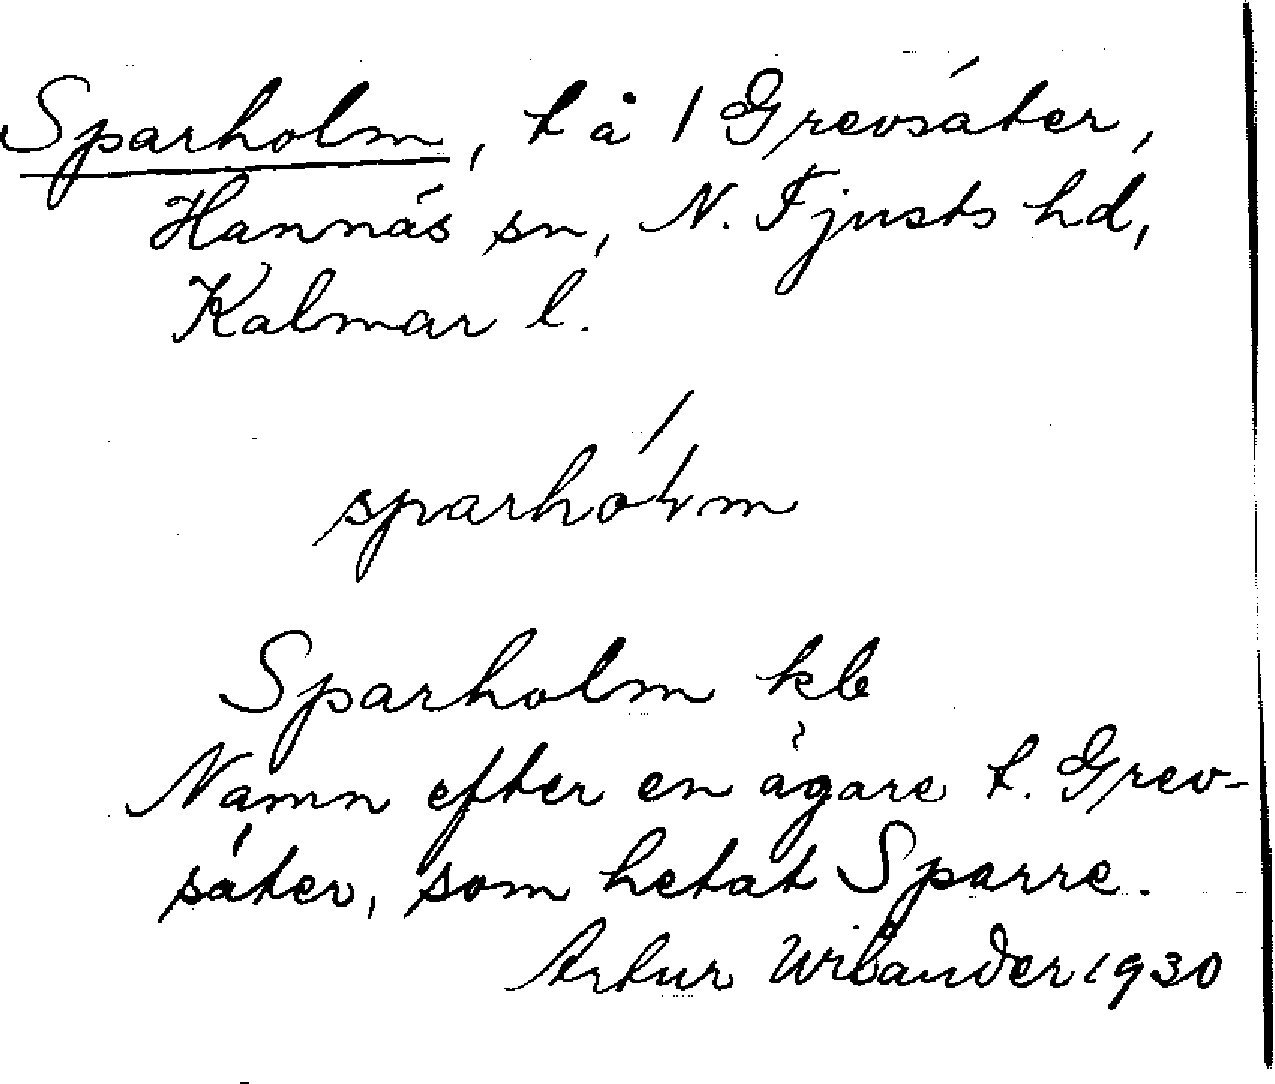 Sparholm, t å 1 Grevsäter,
Hannäs sn, N. Tjusts hd,
Kalmar l.
sparhó
Sparholm kb
Namn efter en ägare t. Grev-
säter, som hetat Sparre.
Artur 1930